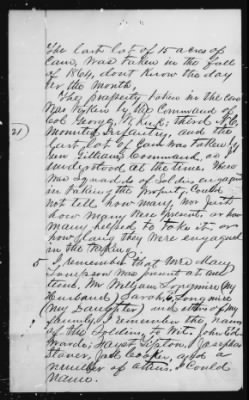 The last lot of 15 acres of
Corn, was taken in the fall
of 1864, dont know the day
or the month,
The property taken in the
was taken by the Command of
Col George, W, Kirk, third N.C.
Mounted Infantry, and the
last lot of Corn was taken by
Gen Gillams Command, as I
understood at the time. There
was squads of Soldiers engaged
in taking the property, Could
not tell how many, nor just
how many were present, or how
many helped to take it, or
how long they were engaged
in the taking,
21
5 I remember that Mrs Mary
Simpson was present at
time. Mr William Longmire (my
Husband) Sarah, E, Longmire
(My Daughter) and others of my
family, I remember the names
of the Soldiers, to Wit, John
Lipton,
Stover, and a
number of others. I Could
name.